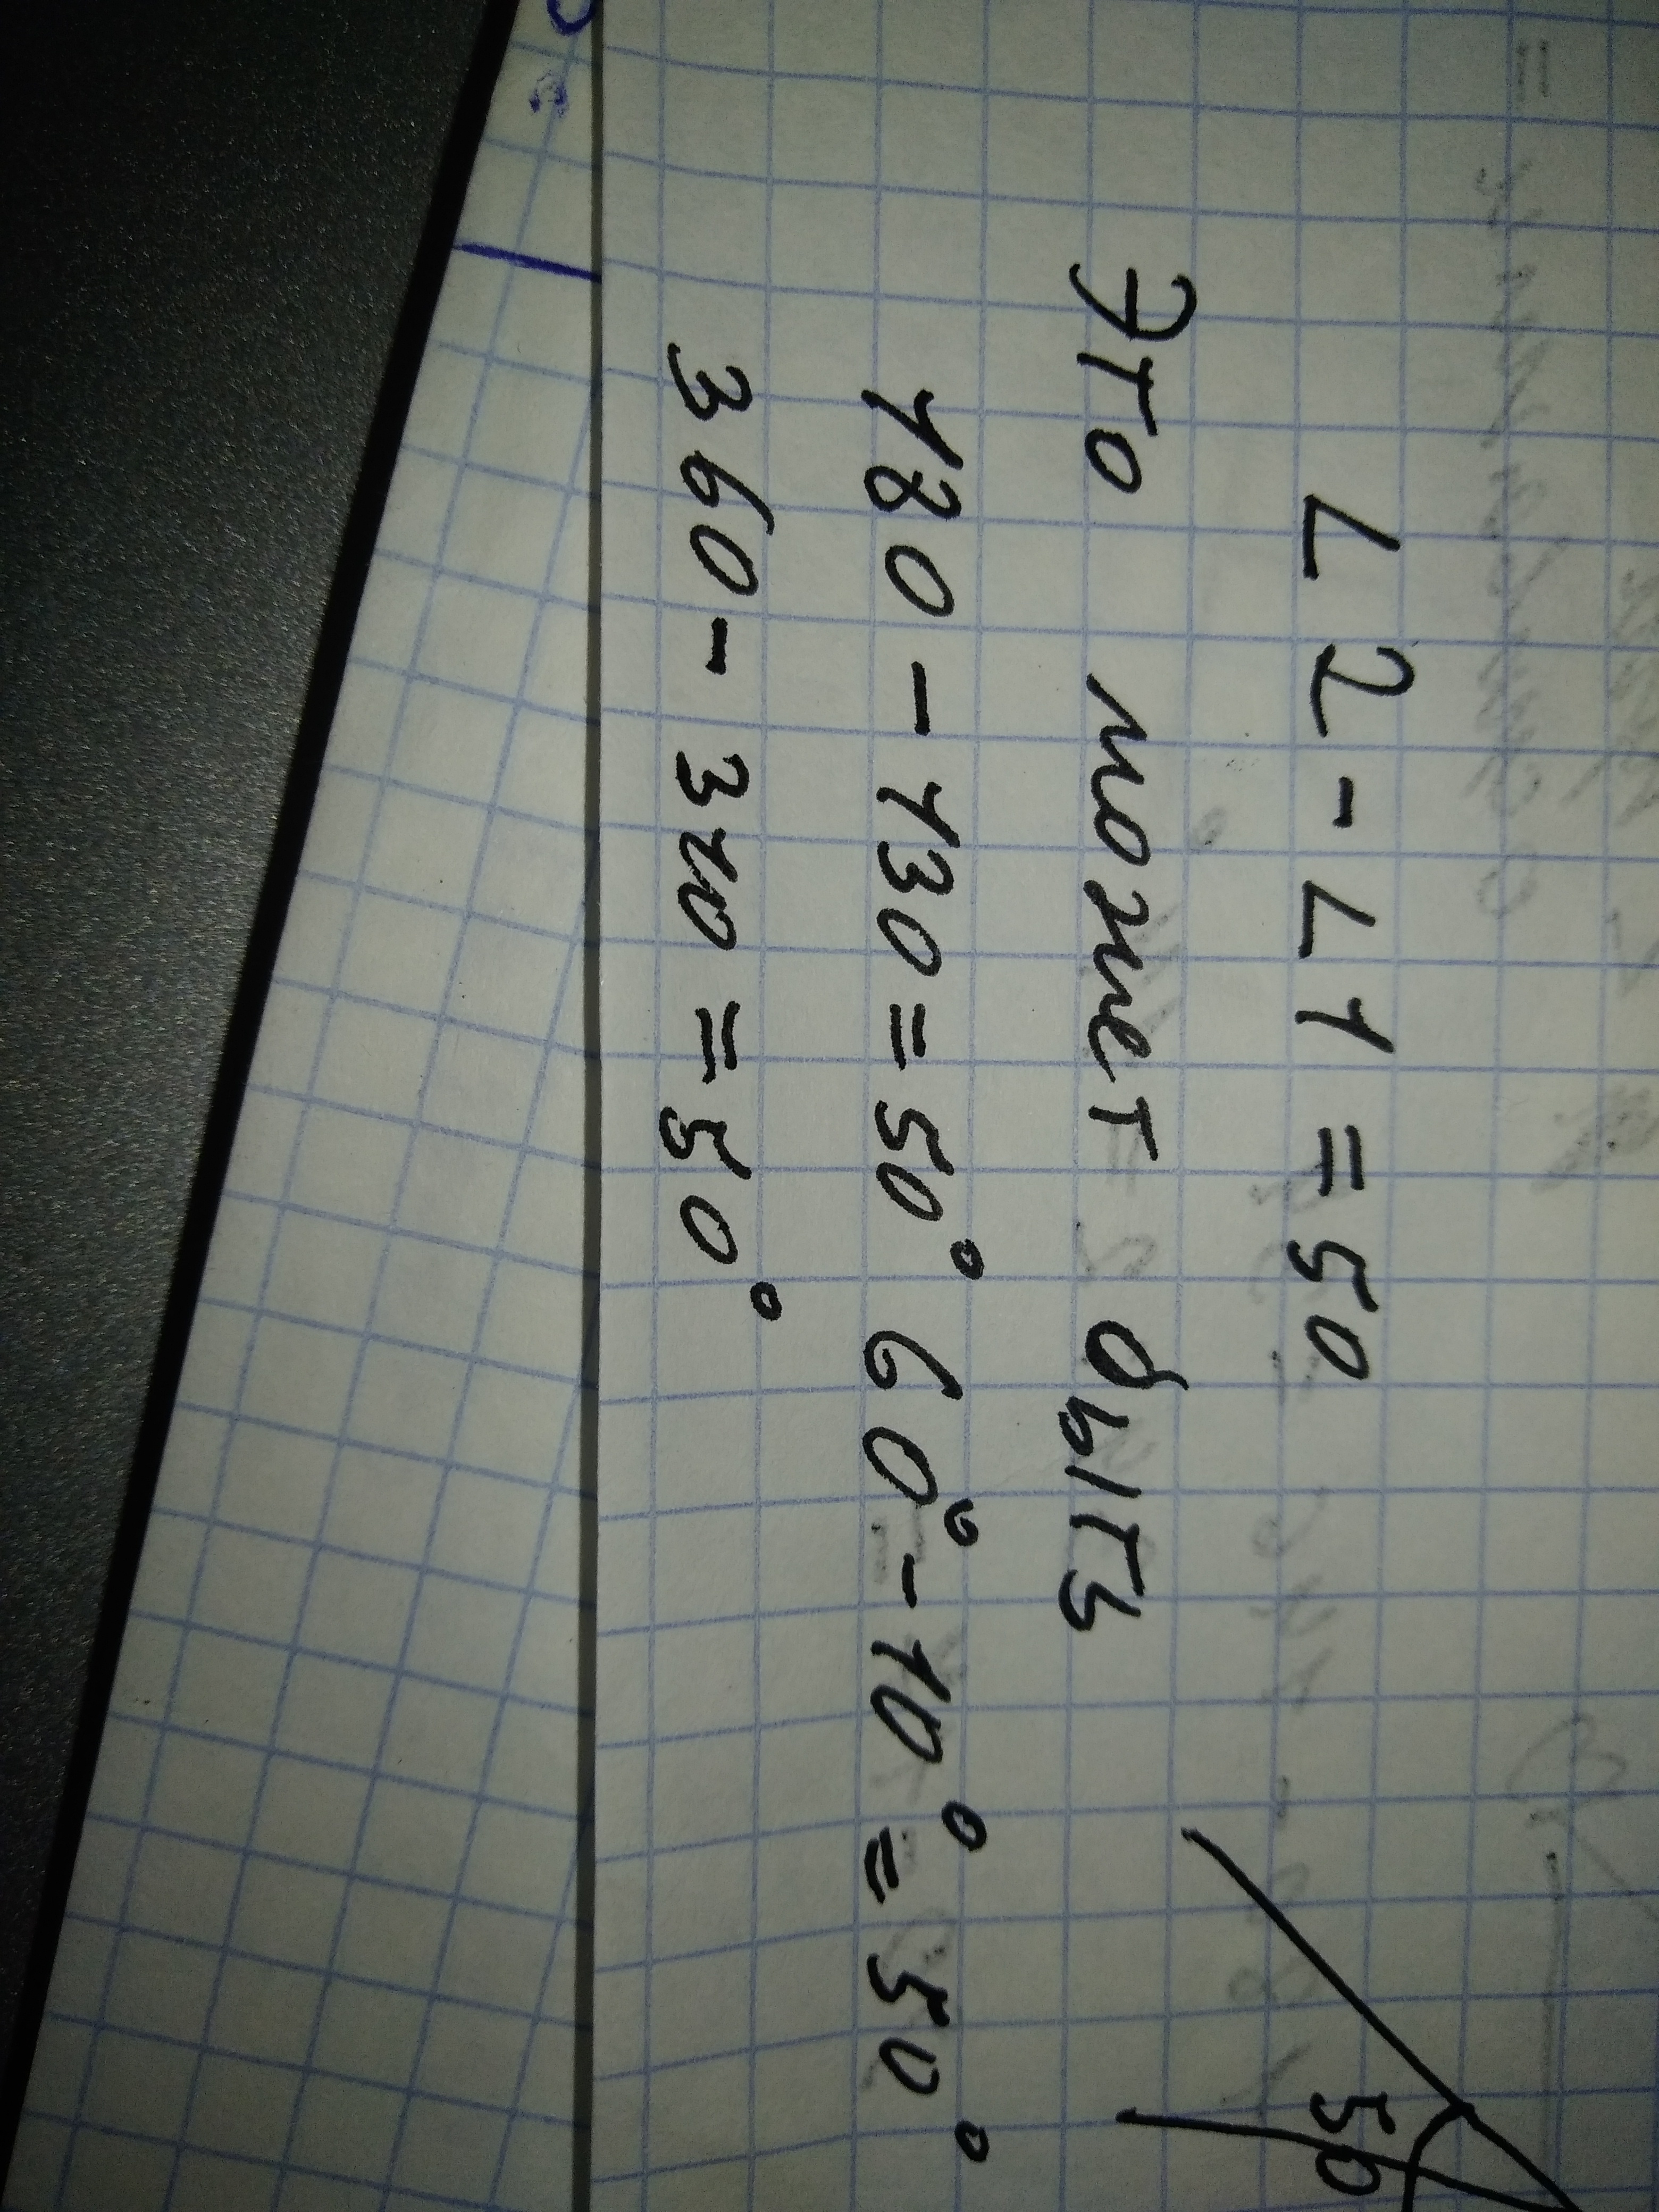 ∠2 - ∠1 = 50
Это может быть
180 - 130 = 50° 60° - 10° = 50°
360 - 310 = 50°
50